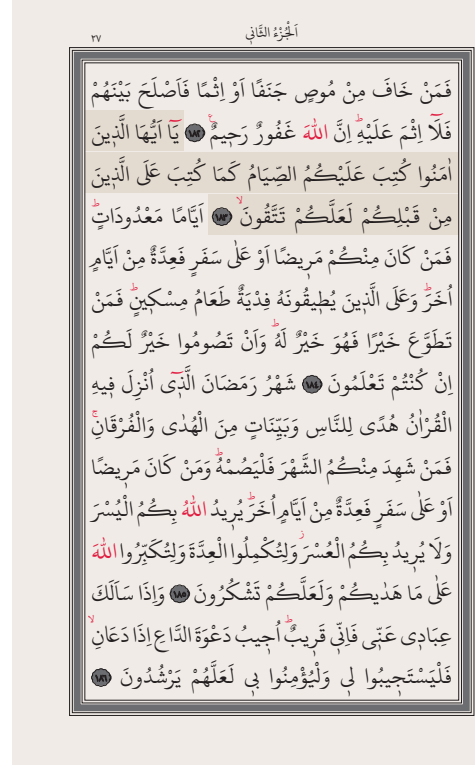 اَلْجُزْءُ الثَّانٖي
٢٧
فَمَنْ خَافَ مِنْ مُوصٍ جَنَفًا اَوْ اِثْمًا فَاَصْلَحَ بَيْنَهُمْ
فَلَٓا اِثْمَ عَلَيْهِؕ اِنَّ اللّٰهَ غَفُورٌ رَحٖيمٌࣖ ﴿١٨٢﴾ يَٓا اَيُّهَا الَّذٖينَ
اٰمَنُوا كُتِبَ عَلَيْكُمُ الصِّيَامُ كَمَا كُتِبَ عَلَى الَّذٖينَ
مِنْ قَبْلِكُمْ لَعَلَّكُمْ تَتَّقُونَۙ ﴿١٨٣﴾ اَيَّامًا مَعْدُودَاتٍؕ
فَمَنْ كَانَ مِنْكُمْ مَرٖيضًا اَوْ عَلٰى سَفَرٍ فَعِدَّةٌ مِنْ اَيَّامٍ
اُخَرَؕ وَعَلَى الَّذٖينَ يُطٖيقُونَهُ فِدْيَةٌ طَعَامُ مِسْكٖينٍؕ فَمَنْ
تَطَوَّعَ خَيْرًا فَهُوَ خَيْرٌ لَهُؕ وَاَنْ تَصُومُوا خَيْرٌ لَكُمْ
اِنْ كُنْتُمْ تَعْلَمُونَ ﴿١٨٤﴾ شَهْرُ رَمَضَانَ الَّـذٖٓي اُنْزِلَ فٖيهِ
الْقُرْاٰنُ هُدًى لِلنَّاسِ وَبَيِّنَاتٍ مِنَ الْهُدٰى وَالْفُرْقَانِۚ
فَمَنْ شَهِدَ مِنْكُمُ الشَّهْرَ فَلْيَصُمْهُؕ وَمَنْ كَانَ مَرٖيضًا
اَوْ عَلٰى سَفَرٍ فَعِدَّةٌ مِنْ اَيَّامٍ اُخَرَؕ يُرٖيدُ اللّٰهُ بِكُمُ الْيُسْرَ
وَلَا يُرٖيدُ بِكُمُ الْعُسْرَؗ وَلِتُكْمِلُوا الْعِدَّةَ وَلِتُكَبِّرُوا اللّٰهَ
عَلٰى مَا هَدٰيكُمْ وَلَعَلَّكُمْ تَشْكُرُونَ ﴿١٨٥﴾ وَاِذَا سَاَلَكَ
عِبَادٖي عَنّٖي فَاِنّٖي قَرٖيبٌؕ اُجٖيبُ دَعْوَةَ الدَّاعِ اِذَا دَعَانِۙ
فَلْيَسْتَجٖيبُوا لٖي وَلْيُؤْمِنُوا بٖي لَعَلَّهُمْ يَرْشُدُونَ ﴿١٨٦﴾